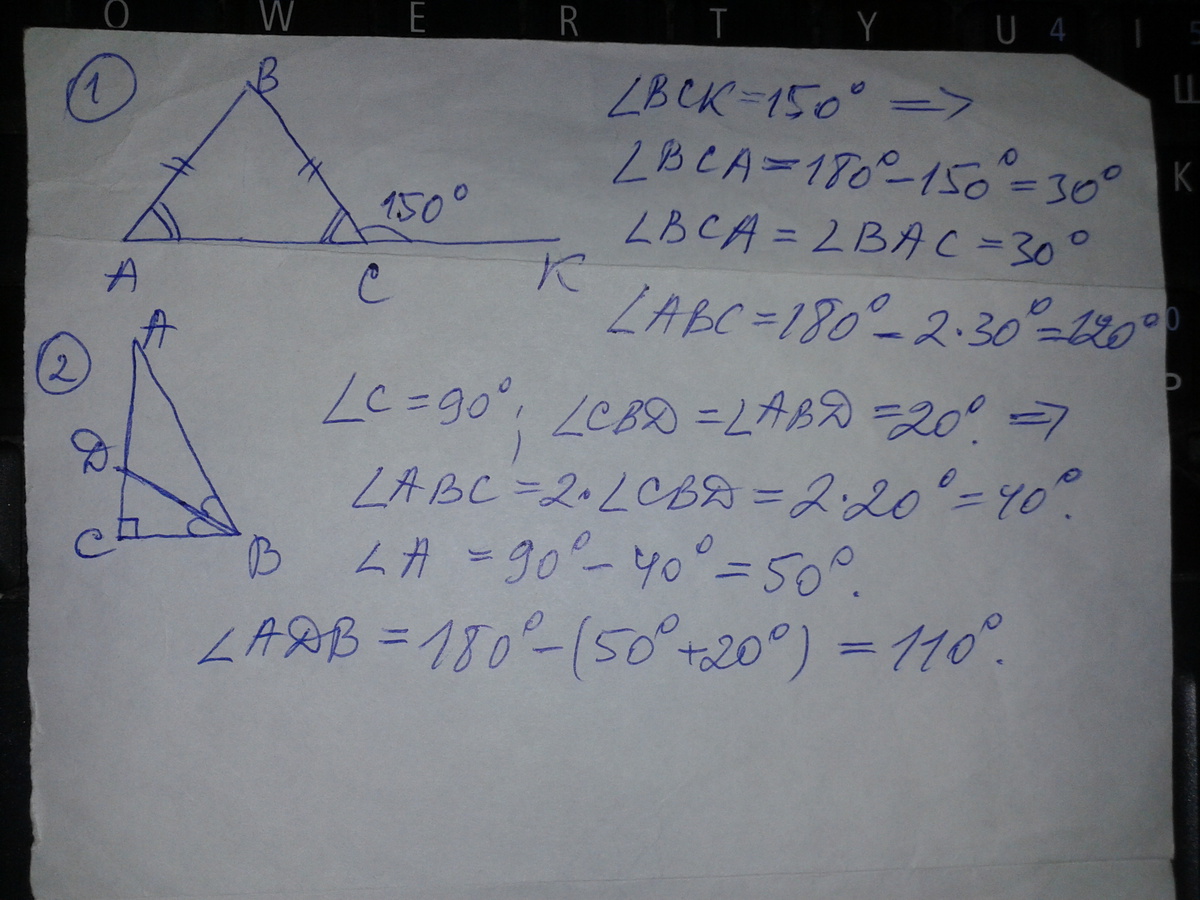 O W E R T Y U 4 I 5
Ш
К
0
Р
1
B
150°
A C K
∠BCK=150° =>
∠BCA=180°-150°=30°
∠BCA=∠BAC=30°
∠ABC=180°-2·30°=120°
2
A
D
C B
∠C=90°; ∠CBD=∠ABD=20°. =>
∠ABC=2·∠CBD=2·20°=40°.
∠A=90°-40°=50°.
∠ADB=180°-(50°+20°)=110°.